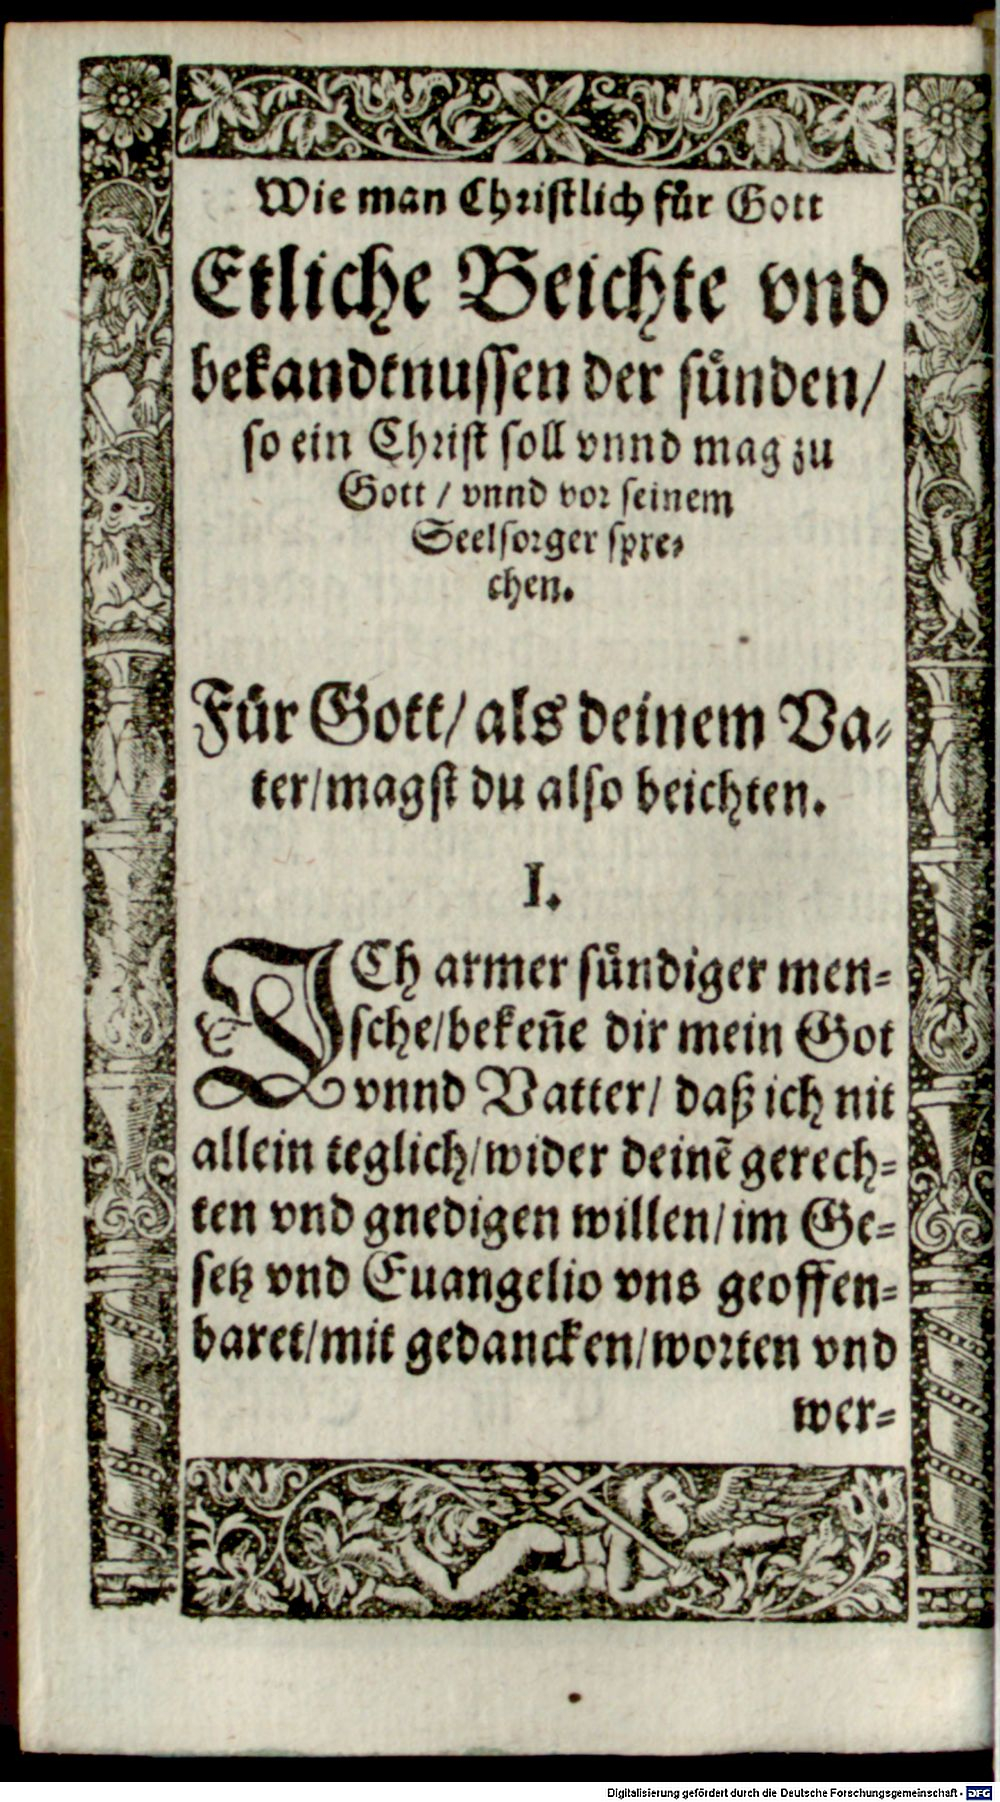 Wie man Christlich für Gott
Etliche Beichte vnd
bekandtnussen der sünden/
so ein Christ soll vnnd mag zu
Gott / vnnd vor seinem
Seelsorger spre-
chen.
Für Gott/ als deinem Va-
ter/magst du also beichten.
I.
ICh armer sündiger men-
sche/bekeñe dir mein Got
vnnd Vatter/ daß ich nit
allein teglich/wider deinẽ gerech-
ten vnd gnedigen willen/im Ge-
setz vnd Euangelio vns geoffen-
baret/mit gedancken/worten vnd
wer-
Digitalisierung gefördert durch die Deutsche Forschungsgemeinschaft - DFG